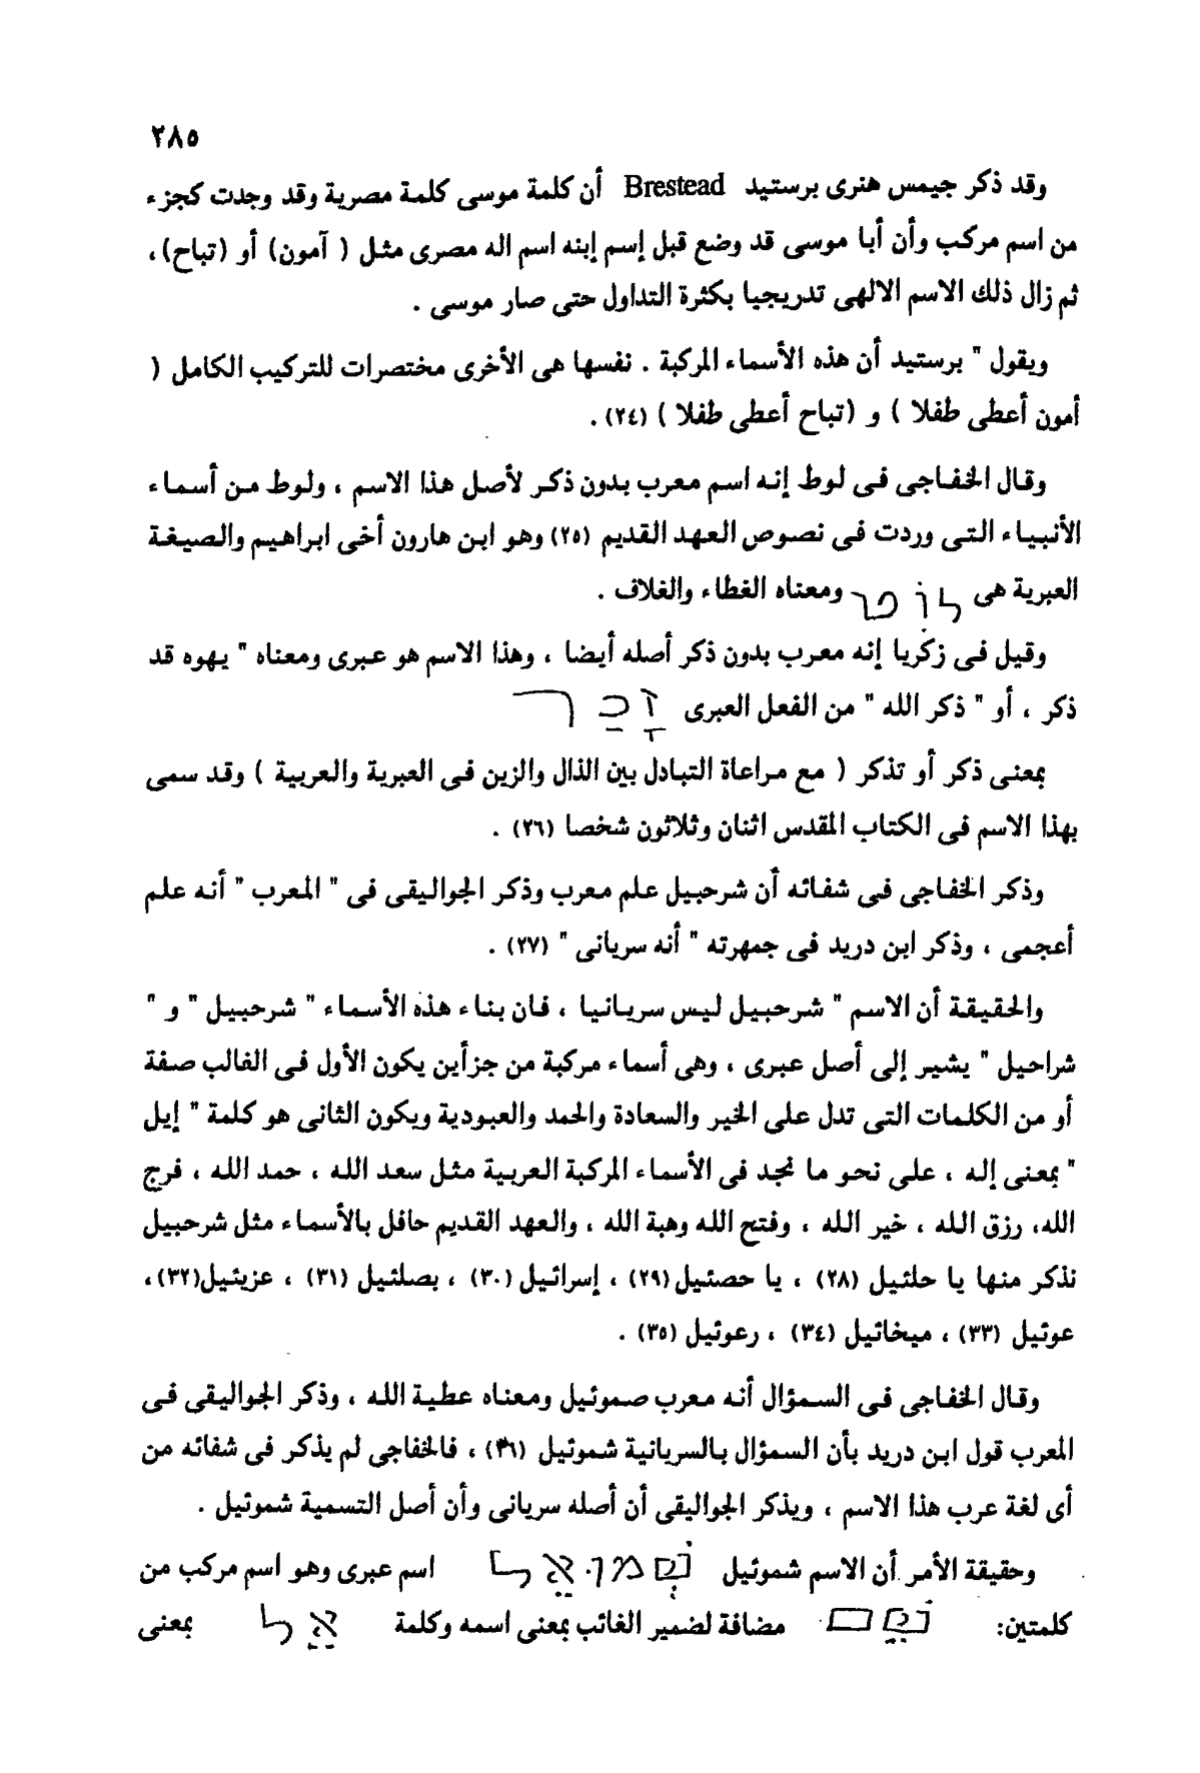 ٢٨٥
وقد ذكر جيمس هنرى برستيد Brestead أن كلمة موسى كلمة مصرية وقد وجدت كجزء
من اسم مركب وأن أبا موسى قد وضع قبل إسم إبنه اسم اله مصرى مثل ( آمون) أو (تباح) ،
ثم زال ذلك الاسم الالهى تدريجيا بكثرة التداول حتى صار موسى .
ويقول " برستيد أن هذه الأسماء المركبة . نفسها هى الأخرى مختصرات للتركيب الكامل (
أمون أعطى طفلا ) و (تباح أعطى طفلا ) (٢٤) .
وقال الخفاجى فى لوط إنه اسم معرب بدون ذكر لأصل هذا الاسم ، ولوط من أسماء
الأنبياء التى وردت فى نصوص العهد القديم (٢٥) وهو ابن هارون أخى ابراهيم والصيغة
العبرية هى לוֹט ومعناه الغطاء والغلاف .
وقيل فى زكريا إنه معرب بدون ذكر أصله أيضا ، وهذا الاسم هو عبرى ومعناه " يهوه قد
ذكر ، أو " ذكر الله " من الفعل العبرى זָכַר
بمعنى ذكر أو تذكر ( مع مراعاة التبادل بين الذال والزين فى العبرية والعربية ) وقد سمى
بهذا الاسم فى الكتاب المقدس اثنان وثلاثون شخصا (٢٦) .
وذكر الخفاجى فى شفائه أن شرحبيل علم معرب وذكر الجواليقى فى " المعرب " أنه علم
أعجمى ، وذكر ابن دريد فى جمهرته " أنه سريانى " (٢٧) .
والحقيقة أن الاسم " شرحبيل ليس سريانيا ، فان بناء هذه الأسماء " شرحبيل " و "
شراحيل " يشير إلى أصل عبرى ، وهى أسماء مركبة من جزأين يكون الأول فى الغالب صفة
أو من الكلمات التى تدل على الخير والسعادة والحمد والعبودية ويكون الثانى هو كلمة " إيل
" بمعنى إله ، على نحو ما نجد فى الأسماء المركبة العربية مثل سعد الله ، حمد الله ، فرج
الله، رزق الله ، خير الله ، وفتح الله وهبة الله ، والعهد القديم حافل بالأسماء مثل شرحبيل
نذكر منها يا حلئيل (٢٨) ، يا حصئيل (٢٩) ، إسرائيل (٣٠) ، بصلئيل (٣١) ، عزيئيل(٣٢)،
عوئيل (٣٣) ، ميخائيل (٣٤) ، رعوئيل (٣٥) .
وقال الخفاجى فى السمؤال أنه معرب صموئيل ومعناه عطية الله ، وذكر الجواليقى فى
المعرب قول ابن دريد بأن السمؤال بالسريانية شموئيل (٣٦) ، فالخفاجى لم يذكر فى شفائه من
أى لغة عرب هذا الاسم ، ويذكر الجواليقى أن أصله سريانى وأن أصل التسمية شموئيل .
وحقيقة الأمر أن الاسم شموئيل שְׁמוּאֵל اسم عبرى وهو اسم مركب من
كلمتين: שֵׁם مضافة لضمير الغائب بمعنى اسمه وكلمة אֵל بمعنى